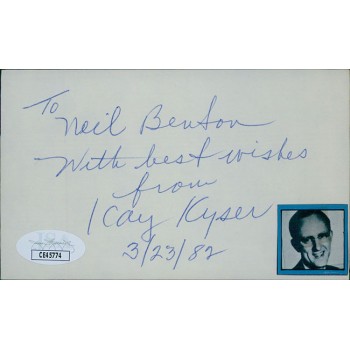 To
Neil Benson
With best wishes
from
Kay Kyser
3/23/82
CE45774